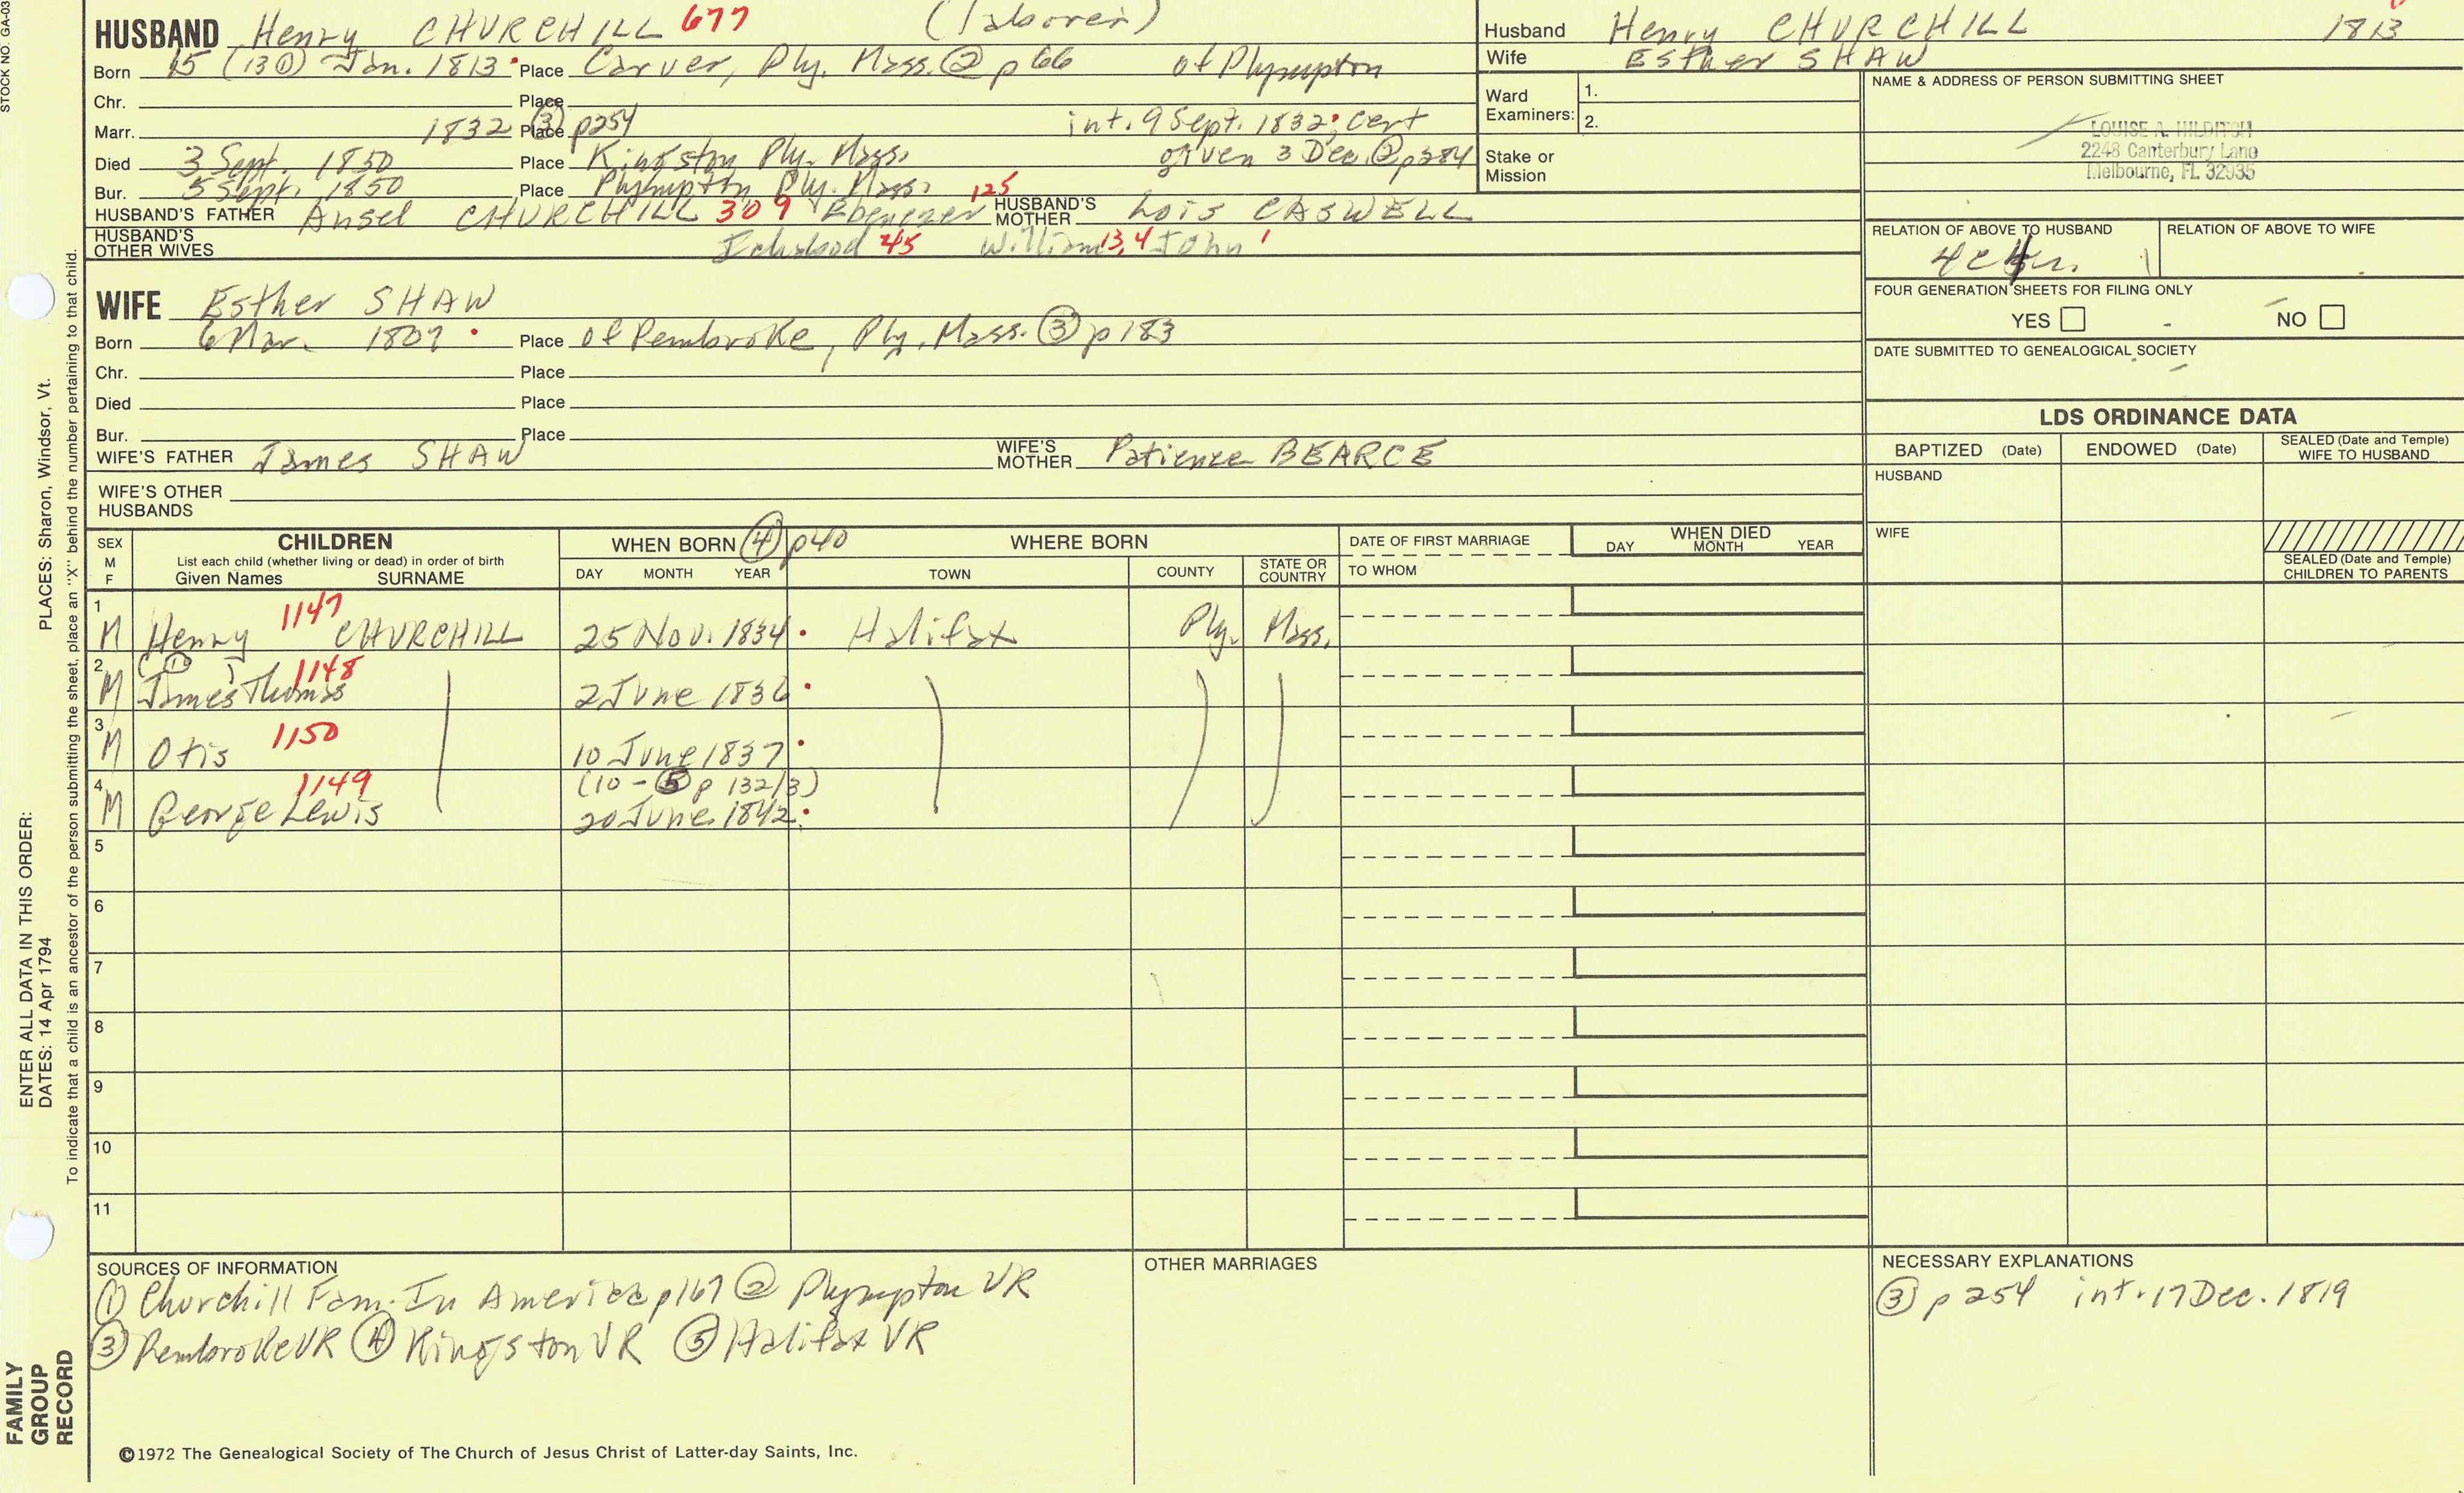 STOCK NO. GA-03
HUSBAND Henry CHURCHILL 677 (laborer)
Born 15 (13 ①) Jan. 1813 Place Carver, Ply. Mass. ② p 66 of Plympton
Chr. Place
Marr. 1832 Place ③ p254 int. 9 Sept. 1832; cert
Died 3 Sept. 1850 Place Kingston Ply. Mass. given 3 Dec. ② p384
Bur. 5 Sept. 1850 Place Plympton Ply. Mass.
HUSBAND'S FATHER Ansel CHURCHILL 309 Ebenezer 125 HUSBAND'S MOTHER Lois CASWELL
HUSBAND'S OTHER WIVES Ichabod 45 William 13,4 John 1
Husband Henry CHURCHILL 1813
Wife Esther SHAW
Ward Examiners: 1.
2.
Stake or Mission
NAME & ADDRESS OF PERSON SUBMITTING SHEET
LOUISE A. HILDITCH
2248 Canterbury Lane
Melbourne, FL 32935
RELATION OF ABOVE TO HUSBAND RELATION OF ABOVE TO WIFE
FOUR GENERATION SHEETS FOR FILING ONLY
YES NO
DATE SUBMITTED TO GENEALOGICAL SOCIETY
WIFE Esther SHAW
Born 6 Mar. 1807 Place of Pembroke, Ply. Mass. ③ p 183
Chr. Place
Died Place
Bur. Place
WIFE'S FATHER James SHAW WIFE'S MOTHER Patience BEARCE
WIFE'S OTHER HUSBANDS
LDS ORDINANCE DATA
BAPTIZED (Date) ENDOWED (Date) SEALED (Date and Temple) WIFE TO HUSBAND
HUSBAND
WIFE
SEALED (Date and Temple) CHILDREN TO PARENTS
SEX M F CHILDREN List each child (whether living or dead) in order of birth Given Names SURNAME
WHEN BORN ④ p40 DAY MONTH YEAR
WHERE BORN TOWN COUNTY STATE OR COUNTRY
DATE OF FIRST MARRIAGE TO WHOM
WHEN DIED DAY MONTH YEAR
1 M Henry 1147 CHURCHILL 25 Nov. 1834 Halifax Ply. Mass.
2 M (①) James Thomas 1148 2 June 1836
3 M Otis 1150 10 June 1837
4 M George Lewis 1149 (10 - ⑤ p 132/3) 20 June 1842
5
6
7
8
9
10
11
SOURCES OF INFORMATION
① Churchill Fam. In America p167 ② Plympton VR
③ Pembroke VR ④ Kingston VR ⑤ Halifax VR
OTHER MARRIAGES
NECESSARY EXPLANATIONS
③ p 254 int. 17 Dec. 1819
©1972 The Genealogical Society of The Church of Jesus Christ of Latter-day Saints, Inc.
ENTER ALL DATA IN THIS ORDER:
DATES: 14 Apr 1794 PLACES: Sharon, Windsor, Vt.
To indicate that a child is an ancestor of the person submitting the sheet, place an "X" behind the number pertaining to that child.
FAMILY
GROUP
RECORD